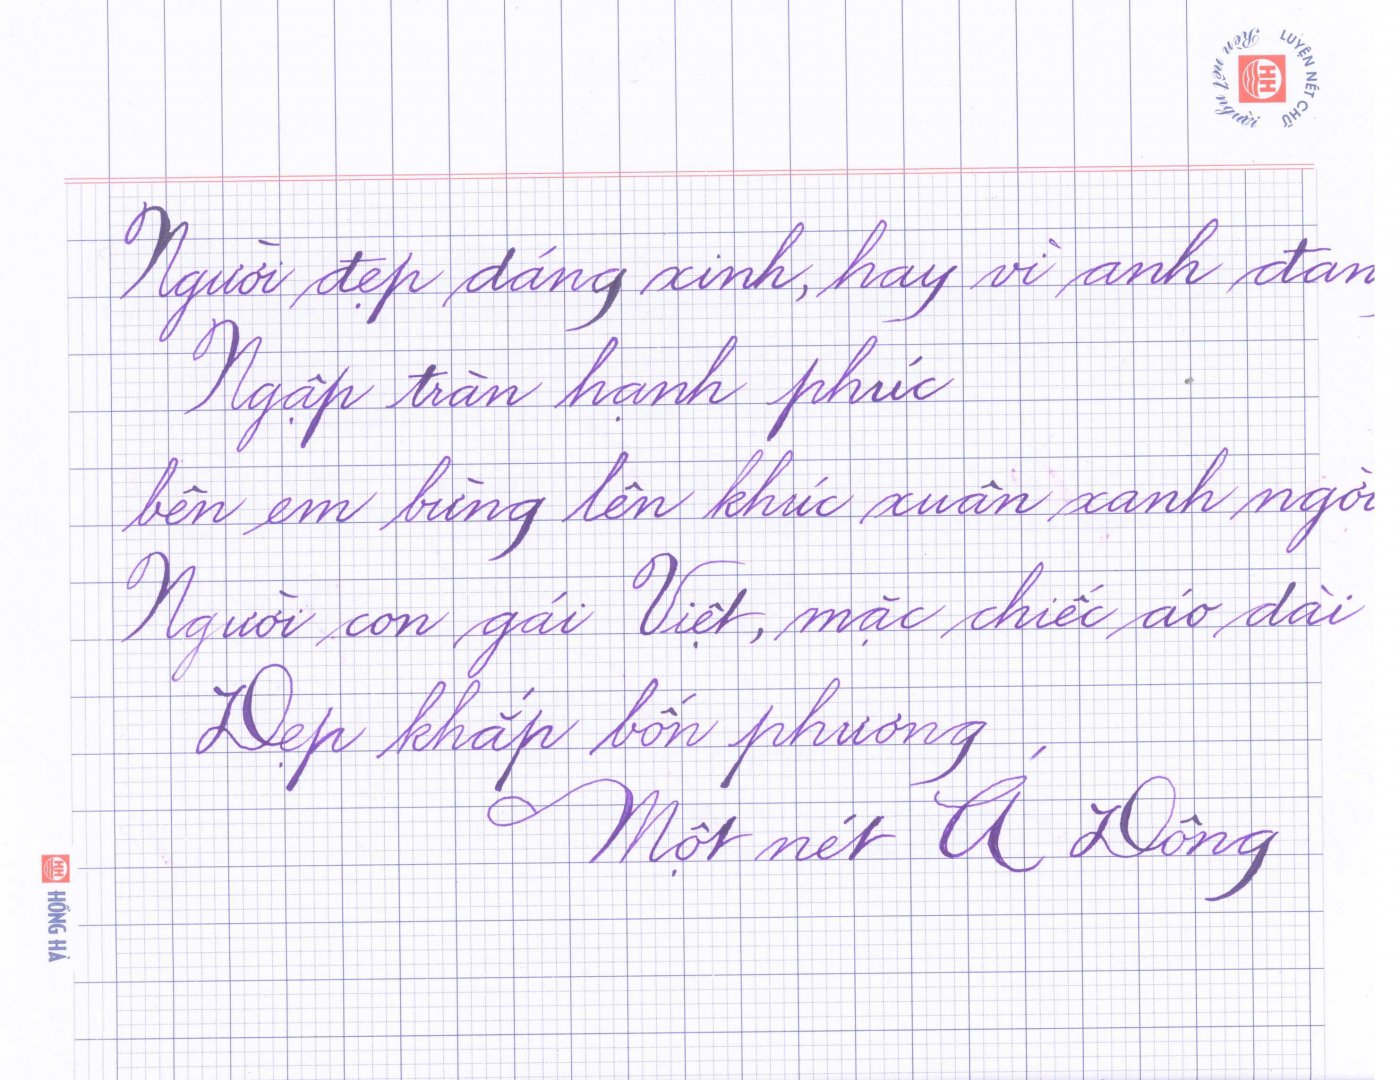 Rèn nét người
LUYỆN NÉT CHỮ
HH
Người đẹp dáng xinh, hay vì anh đan
Ngập tràn hạnh phúc
bên em bừng lên khúc xuân xanh ngời
Người con gái Việt, mặc chiếc áo dài
Đẹp khắp bốn phương
Một nét Á Đông
HH HỒNG HÀ